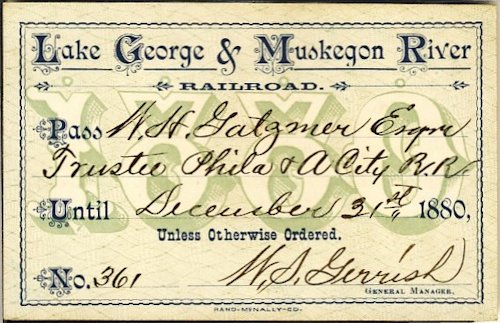 Lake George & Muskegon River
RAILROAD.
1880
Pass W. H. Gatzmer Esqre
Trustee Phila & A City R.R.
Until December 31st 1880,
Unless Otherwise Ordered.
No. 361 W. S. Gerrish
GENERAL MANAGER.
RAND-McNALLY-CO.